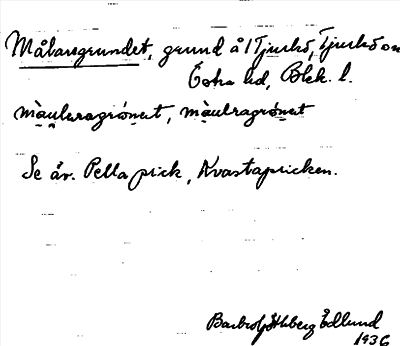 Målaregrundet, grund å 1 Tjurkö, Tjurkö sn
Östra hd, Blek. l.
màularagrónẹt, màulragrónẹt
Se äv. Pella prick, Kvastapricken.
Barbro Söderberg Edlund
1936